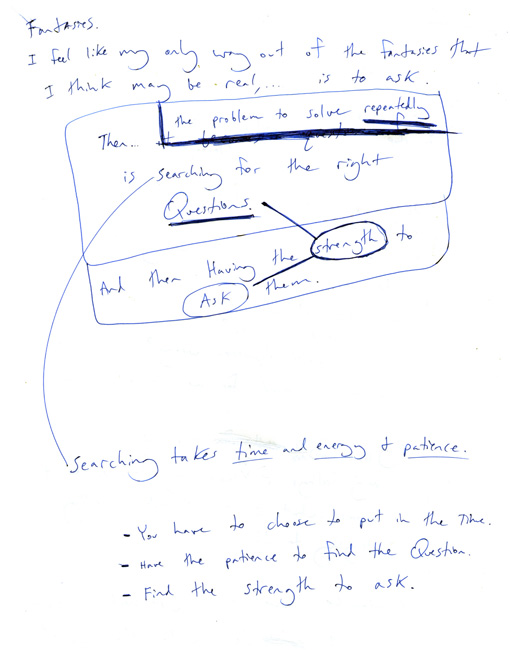 Fantasies.
I feel like my only way out of the fantasies that
I think may be real,... is to ask.
the problem to solve repeatedly
Then...
is searching for the right
Questions.
And then Having the strength to
Ask them.
Searching takes time and energy & patience.
- You have to choose to put in the Time.
- Have the patience to find the Question.
- Find the strength to ask.